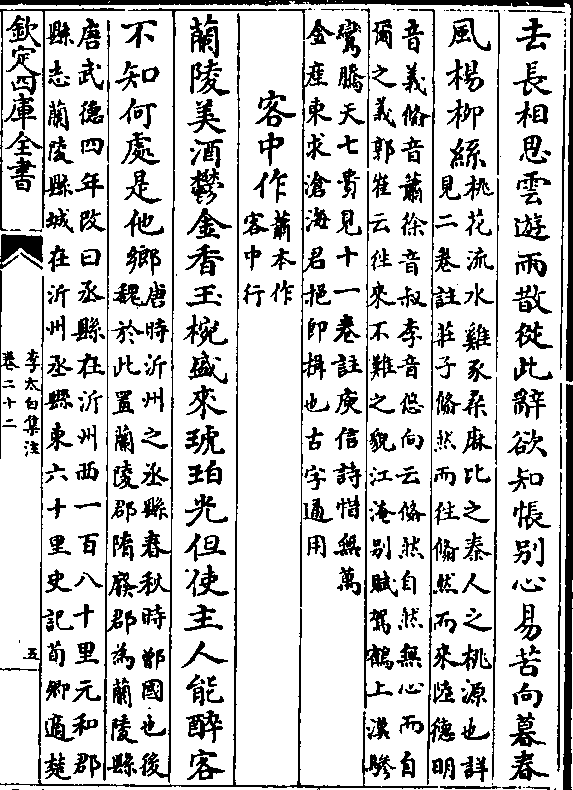 去長相思雲遊雨散從此辭欲知悵别心易苦向暮春
風楊柳絲
桃花流水雞豕桑麻比之秦人之桃源也詳
見二卷註莊子翛然而往翛然而來陸德明
音義翛音蕭徐音叔李音悠向云翛然自然無心而自
爾之義郭崔云往來不難之貌江淹别賦駕鶴上漢驂
鸞騰天七貴見十一卷註庾信詩惜無萬
金產東求滄海君挹即揖也古字通用
客中作
蕭本作
客中行
蘭陵美酒鬱金香玉椀盛來琥珀光但使主人能醉客
不知何處是他鄉
唐時沂州之丞縣春秋時鄫國也後
魏於此置蘭陵郡隋廢郡為蘭陵縣
唐武德四年改曰丞縣在沂州西一百八十里元和郡
縣志蘭陵縣城在沂州丞縣東六十里史記荀卿適楚
欽定四庫全書
李太白集注
卷二十二
五